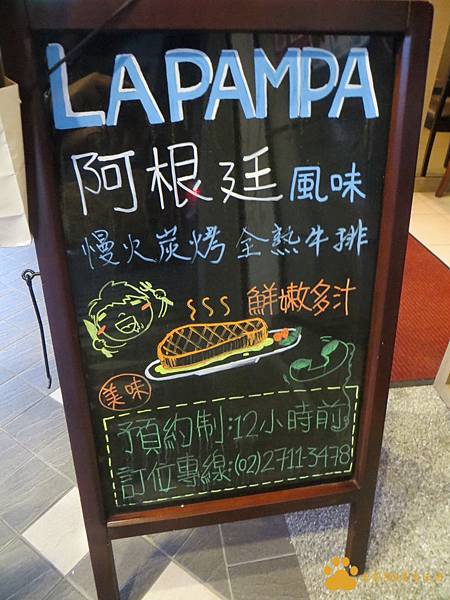 LA PAMPA
阿根廷風味
慢火炭烤 全熟牛排
鮮嫩多汁
美味
預約制:12小時前
訂位專線:(02)2711-3478